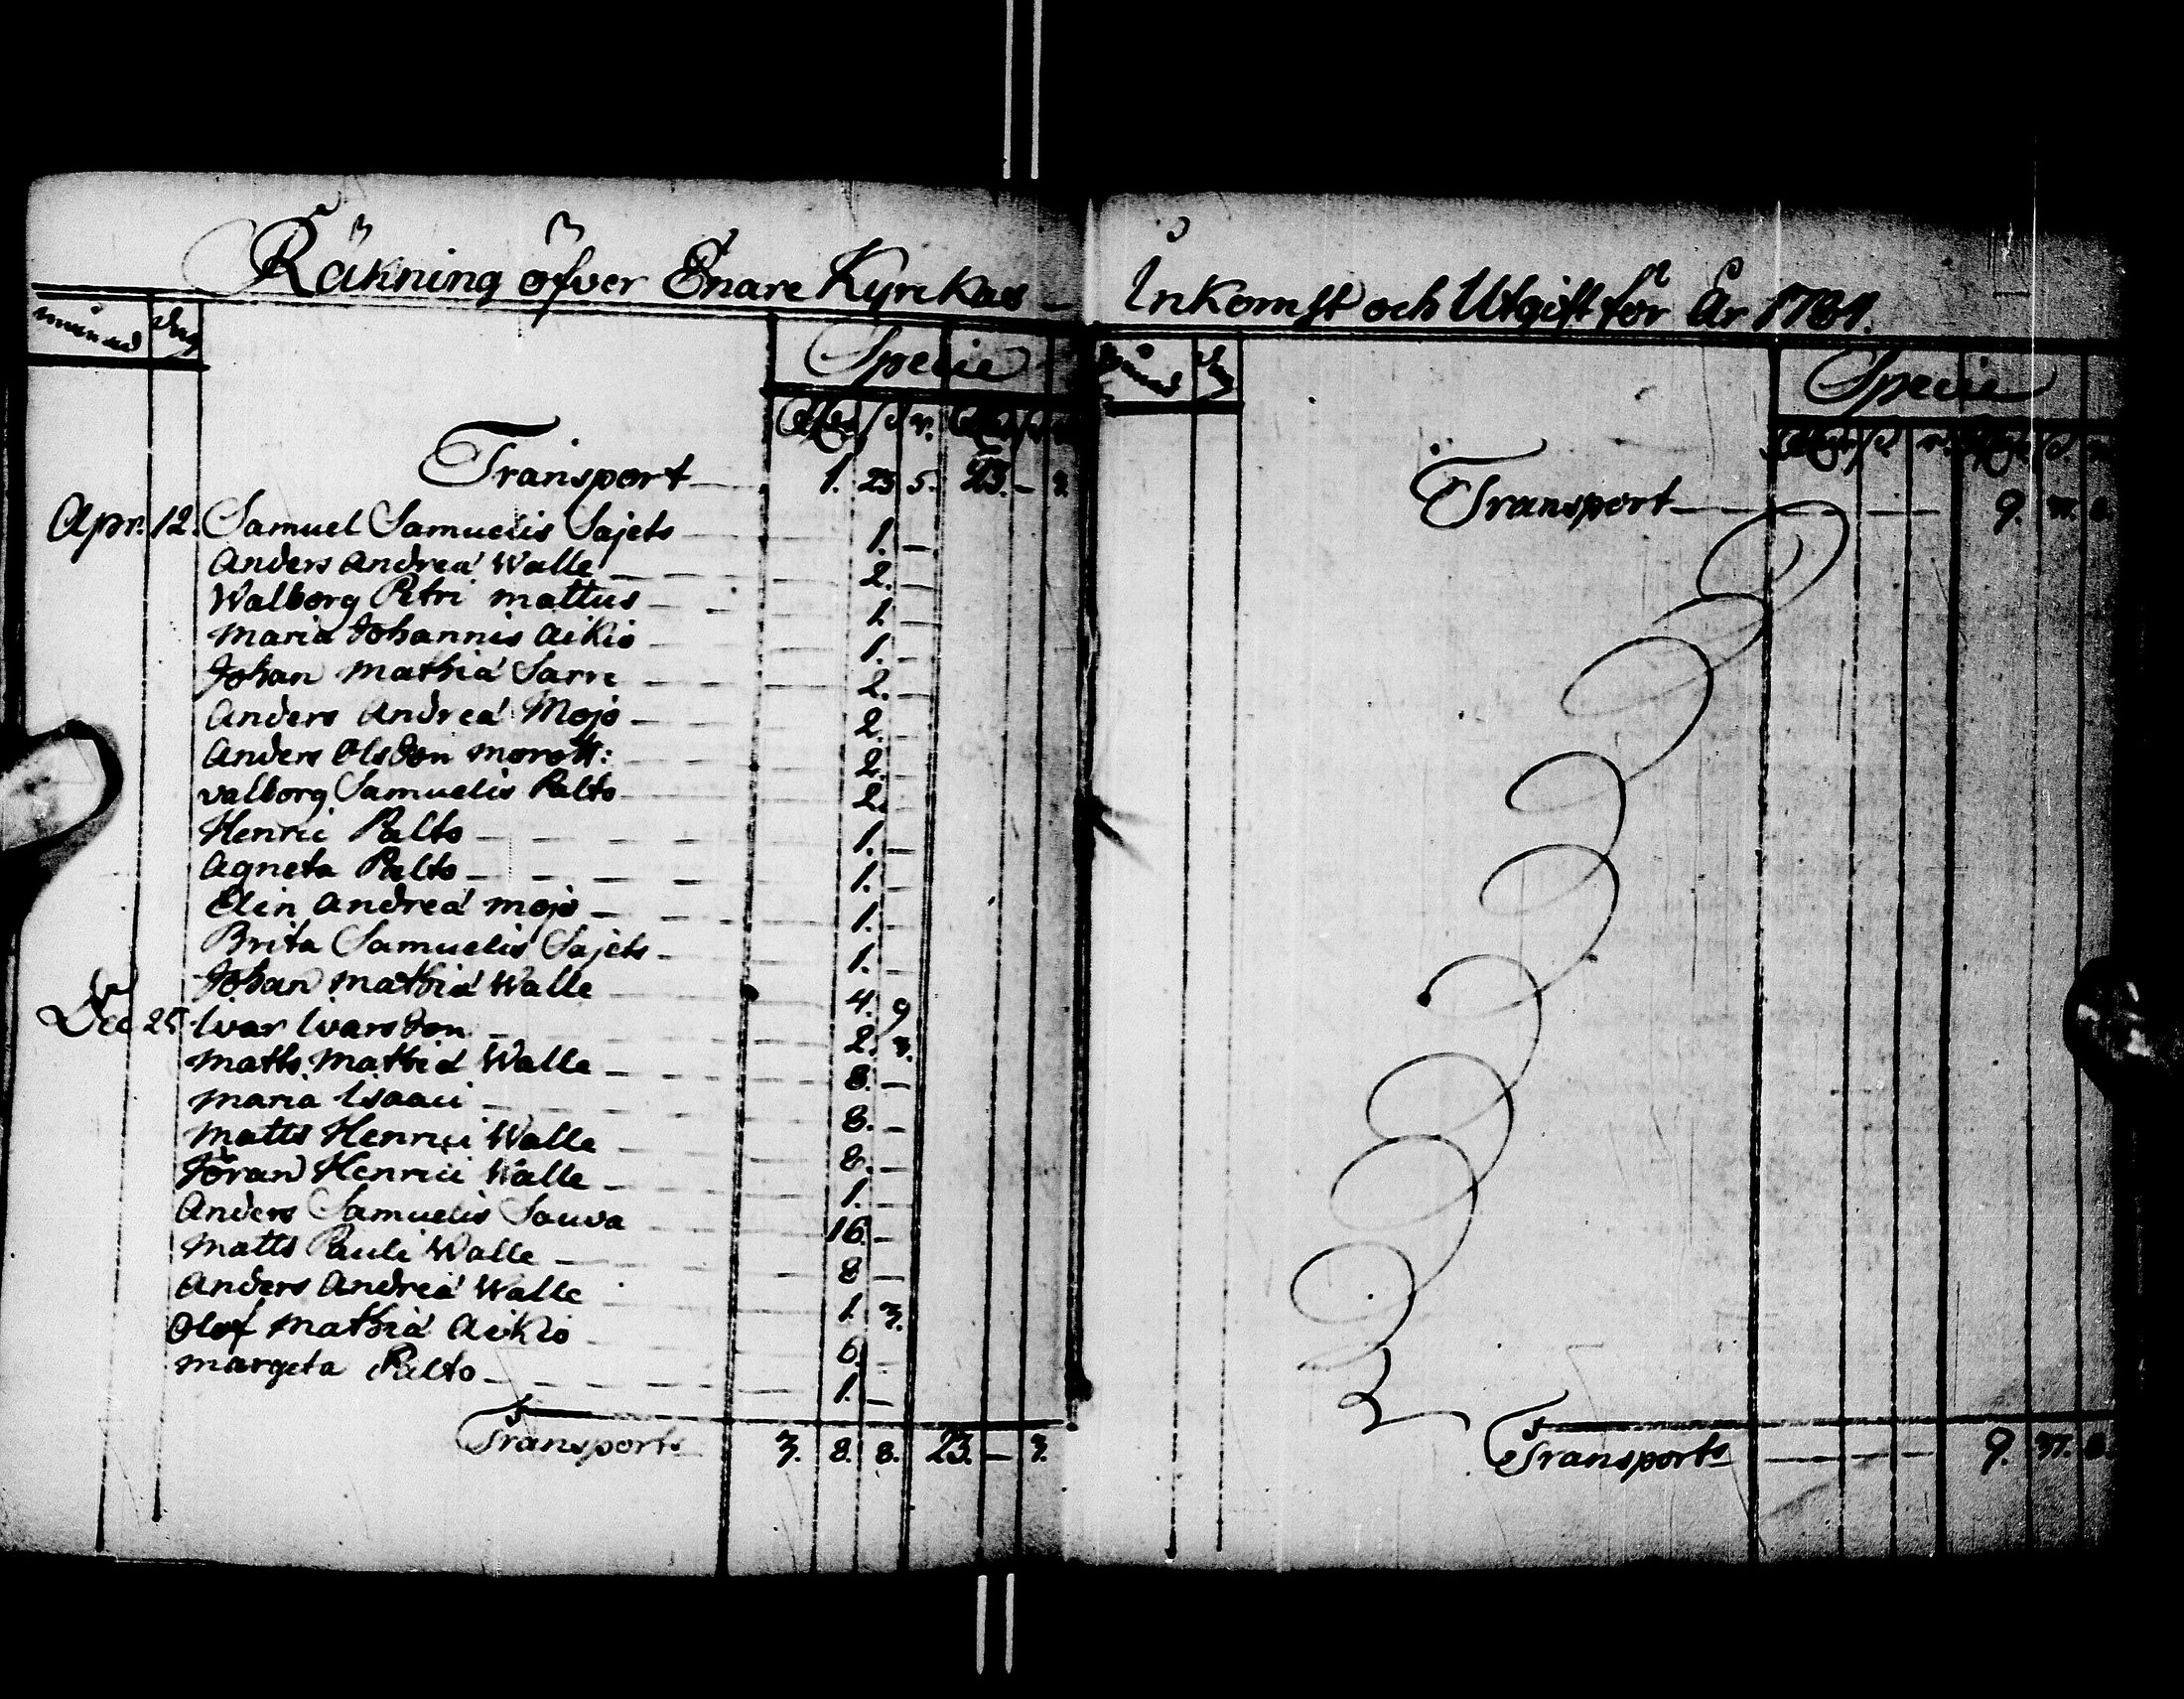 Räkning öfver Enare Kyrckas –
månad Dag Specie
s. r.
Transport — 1. 23 5. 23. – 3.
Apr. 12. Samuel Samuelis Sajets — 1. —
Anders Andreæ Walle — 2. —
Walborg Petri Mattus — 1. —
Maria Johannis Aikio — 1. —
Johan Mathiæ Sarre — 2. —
Anders Andreæ Mojo — 2. —
Anders Olsson Morott: — 2. —
Valborg Samuelis Palto — 2. —
Henric Palto — 1. —
Agneta Palto — 1. —
Elin Andreæ Mojo — 1. —
Brita Samuelis Sajets — 1. —
Johan Mathiæ Walle — 4. 9
Dec. 25 Ivar Ivarsson — 2. 3.
Matts Mathiæ Walle — 8. —
Maria Isaaci — 8. —
Matts Henrici Walle — 8. —
Jöran Henrici Walle — 1. —
Anders Samuelis Sauva — 16. —
Matts Pauli Walle — 8 —
Anders Andreæ Walle — 1. 3.
Olof Mathiæ Aikio — 6. —
Margeta Palto — 1. —
Transport 3. 8. 8. 23. — 3.
Inkomst och Utgift för År
månad Dag Specie
Transport — 9. 37.
Transport — 9. 37.